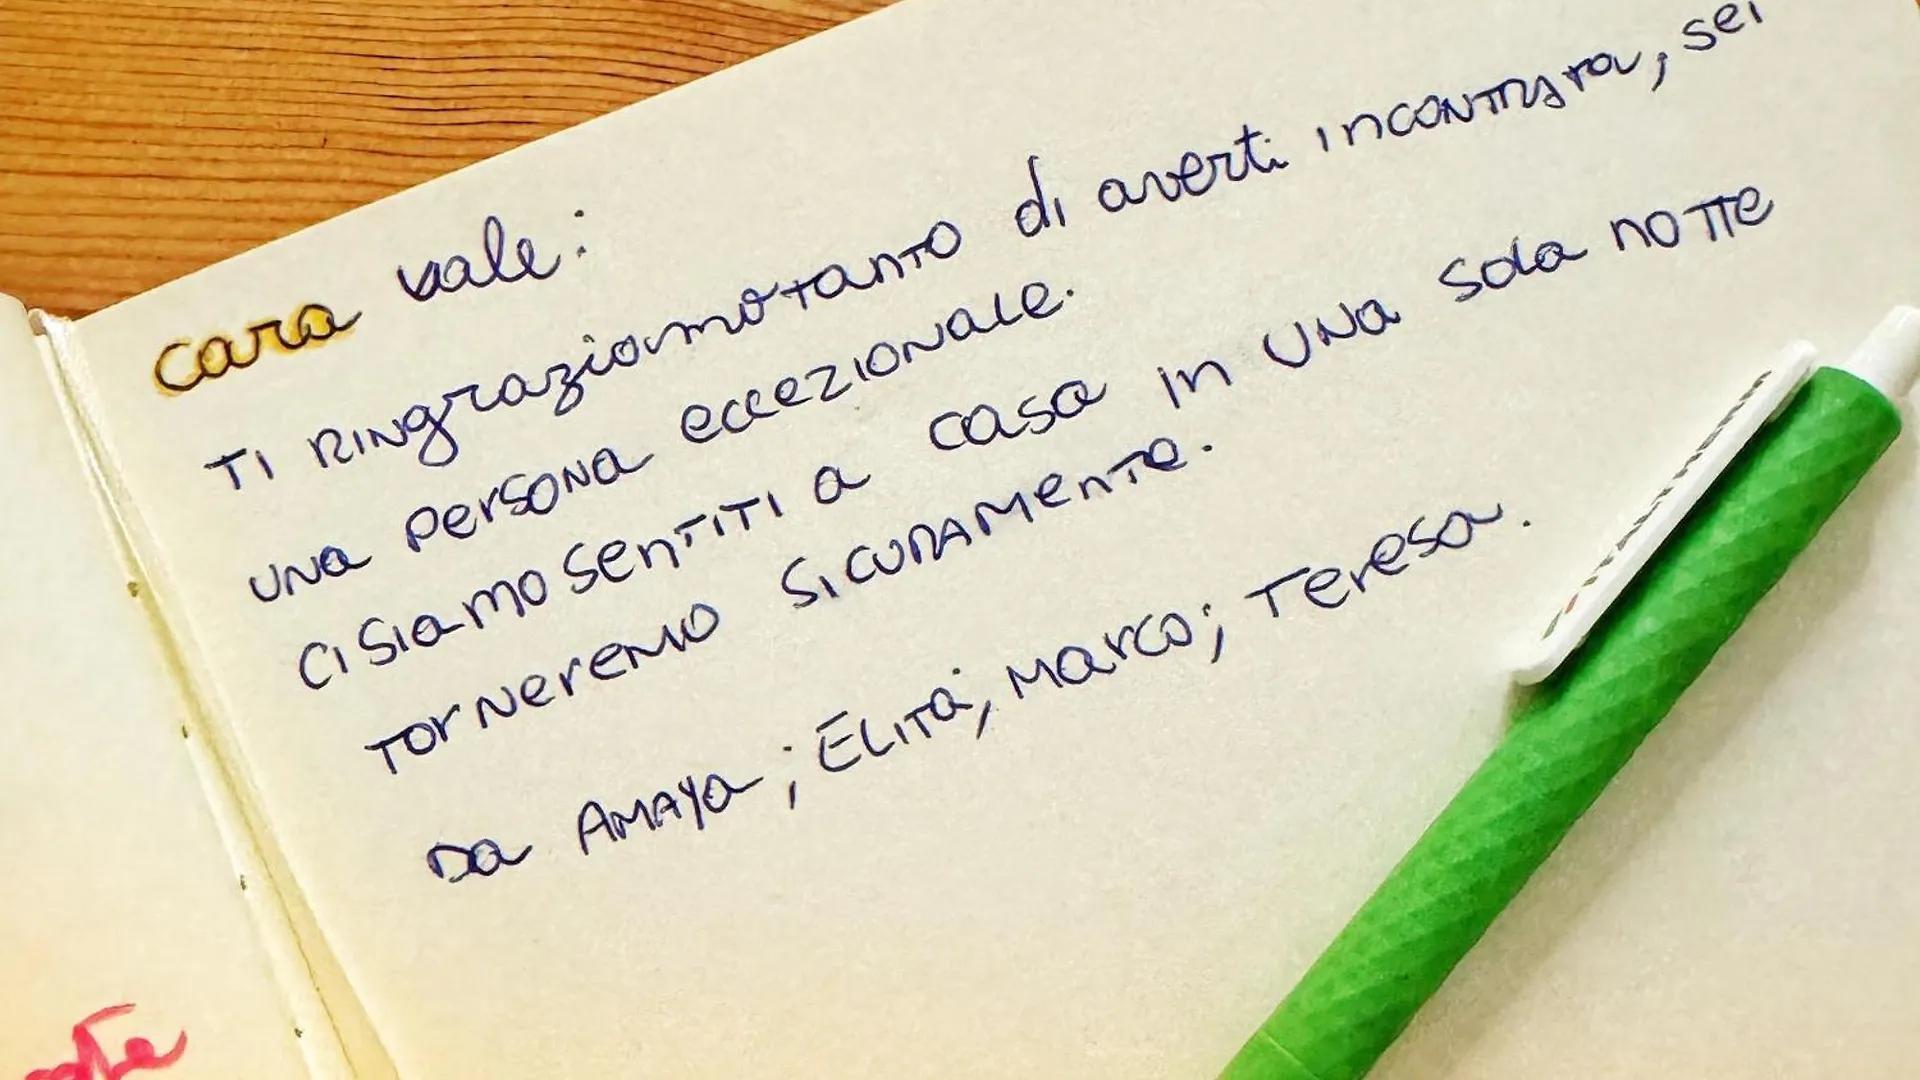 cara vale:
TI RINgraziamo tanto di averti incontrata, sei
UNa persona eccezionale.
CI SIamo sentiti a casa in UNa sola notte
TorNeremo sicuramente.
Da AMAYa; ELITa; Marco; Teresa.